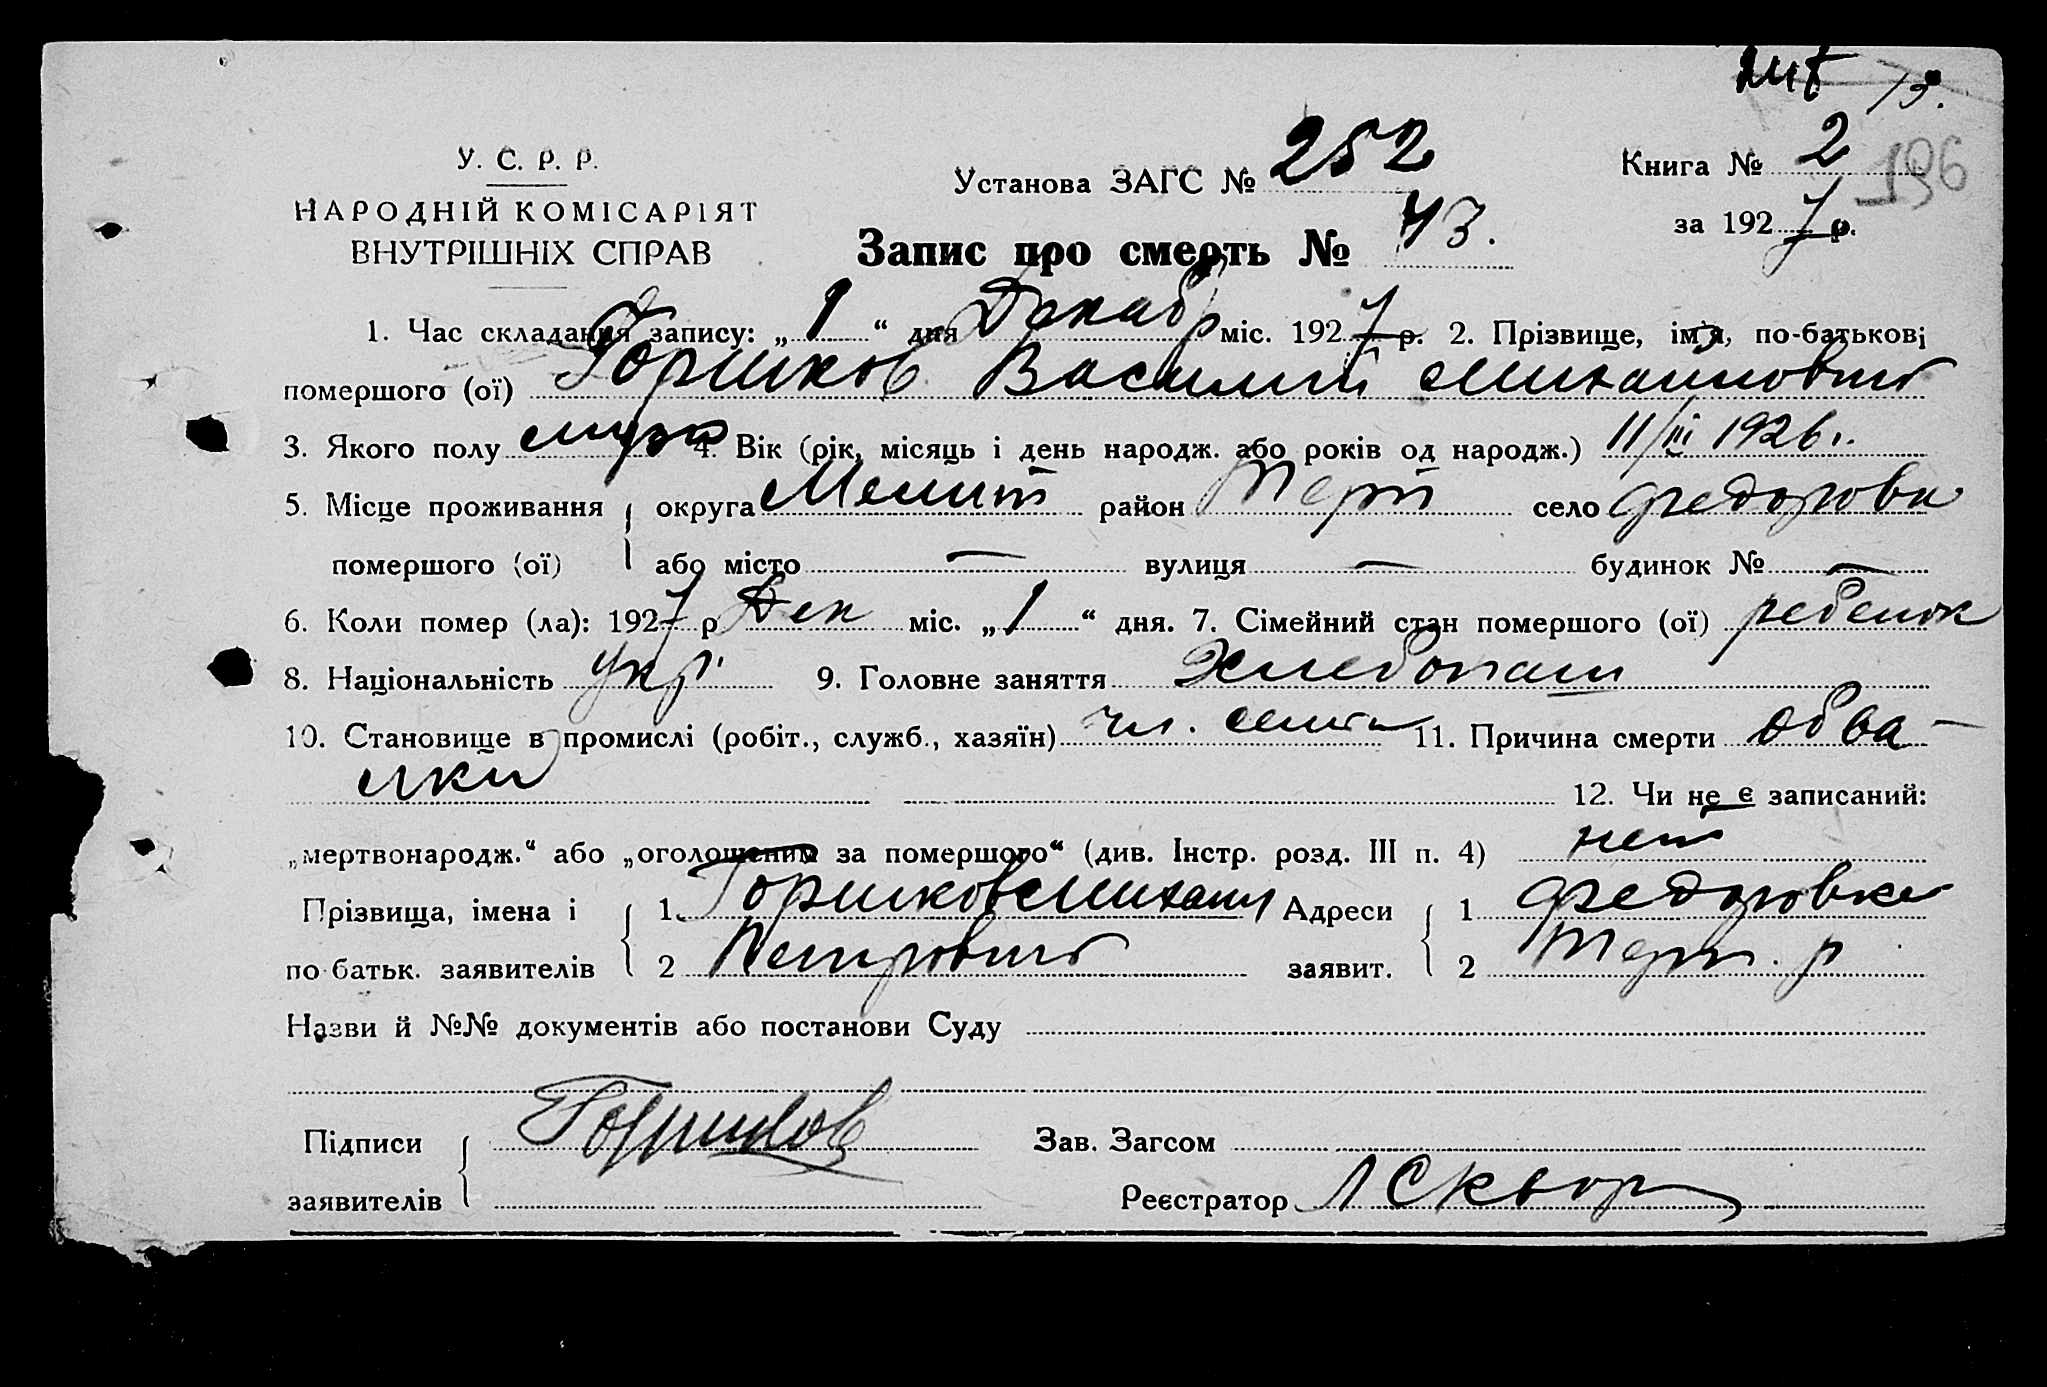 13.
У. С. Р. Р.
НАРОДНІЙ КОМІСАРІЯТ
ВНУТРІШНІХ СПРАВ
Установа ЗАГС № 252
Книга № 2 196
за 1927 р.
Запис про смерть № 43.
1. Час складання запису: „1“ дня Декабр міс. 1927 р. 2. Прізвище, ім'я, по-батькові
помершого (ої) Горшков Василий Михайлович
3. Якого полу муж 4. Вік (рік, місяць і день народж. або років од народж.) 11/III 1926 г.
5. Місце проживання округа Мелит район Терп село Федоровка
помершого (ої) або місто — вулиця — будинок № —
6. Коли помер (ла): 1927 р Дек міс. „1“ дня. 7. Сімейний стан помершого (ої) ребенок
8. Національність укр. 9. Головне заняття Хлебопаш
10. Становище в промислі (робіт., служб., хазяїн) чл. семьи 11. Причина смерти
12. Чи не є записаний:
„мертвонародж.“ або „оголошеним за помершого“ (див. Інстр. розд. III п. 4) нет
Прізвища, імена і 1. Горшков Михаил Адреси 1 Федоровка
по-батьк. заявителів 2 Петрович заявит. 2 Терп. р
Назви й №№ документів або постанови Суду
Підписи Горшков Зав. Загсом
заявителів Реєстратор